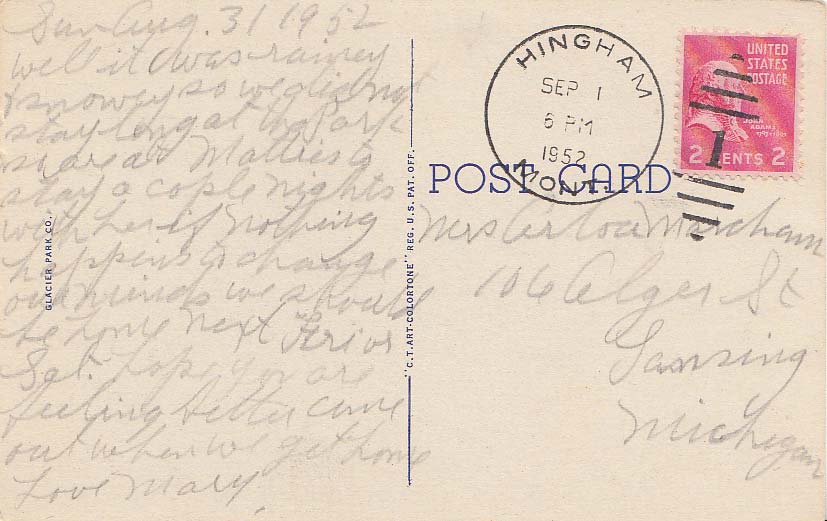 Sun Aug. 31 1952
well it was rainey
& snowey so we did not
stay long at the Park
are at Matties to
stay a cople nights
with her if nothing
happens to change
our minds we should
be home next Fri or
Sat. hope you are
feeling better come
out when we get home
Love Mary
GLACIER PARK CO.
"C.T. ART-COLORTONE" REG. U.S. PAT. OFF.
POST CARD
HINGHAM
SEP 1
6 PM
1952
MONT.
UNITED
STATES
POSTAGE
JOHN
ADAMS
2 CENTS 2
1
Mrs Marcham
106 Alger St
Lansing
Michigan